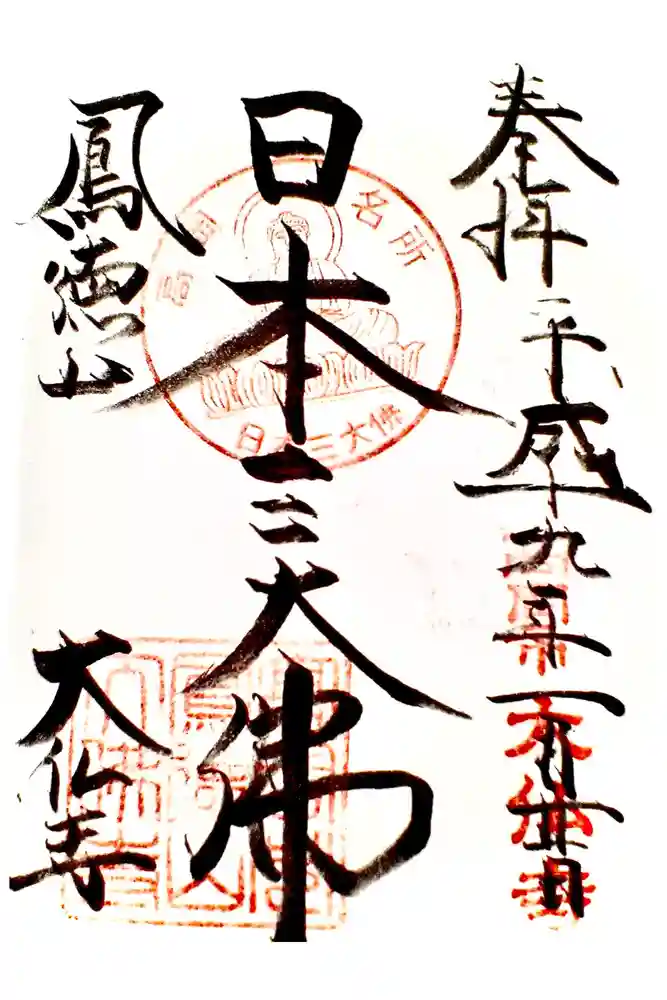 奉拝
平成
九年一月廿日
日本三大佛
鳳徳山
大仏寺
高岡名所
日本三大佛